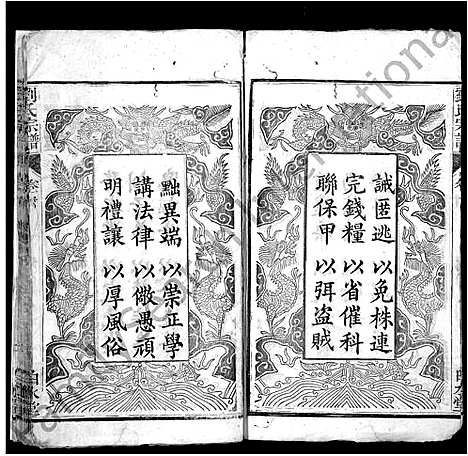 誡匿逃 以免株連
完錢糧 以省催科
聯保甲 以弭盜賊
黜異端 以崇正學
講法律 以儆愚頑
明禮讓 以厚風俗
劉氏宗譜
卷首